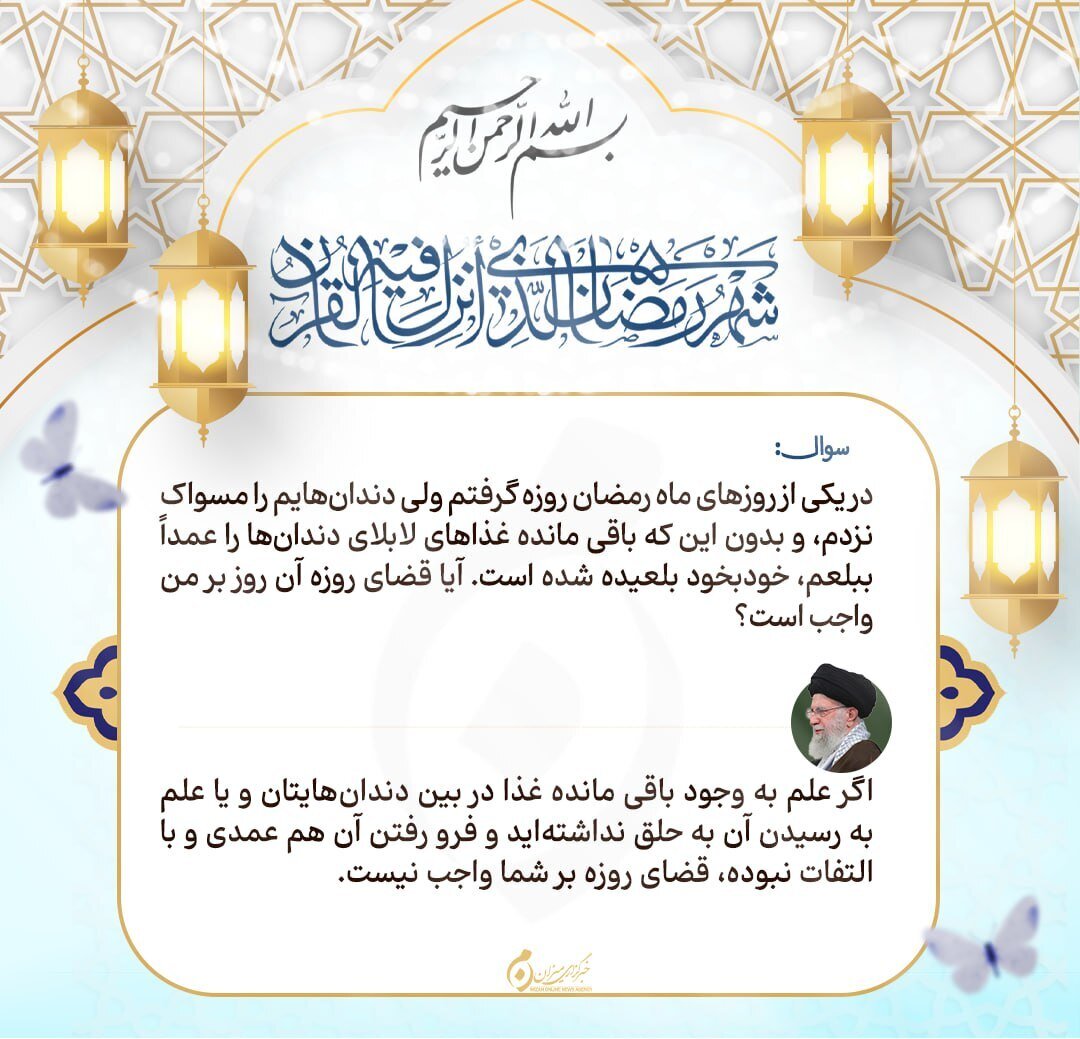 بسم الله الرحمن الرحیم
شهر رمضان الذی أنزل فیه القرآن
سوال:
در یکی از روزهای ماه رمضان روزه گرفتم ولی دندان‌هایم را مسواک
نزدم، و بدون این که باقی مانده غذاهای لابلای دندان‌ها را عمداً
ببلعم، خودبخود بلعیده شده است. آیا قضای روزه آن روز بر من
واجب است؟
اگر علم به وجود باقی مانده غذا در بین دندان‌هایتان و یا علم
به رسیدن آن به حلق نداشته‌اید و فرو رفتن آن هم عمدی و با
التفات نبوده، قضای روزه بر شما واجب نیست.
خبرگزاری میزان
MIZAN ONLINE NEWS AGENCY